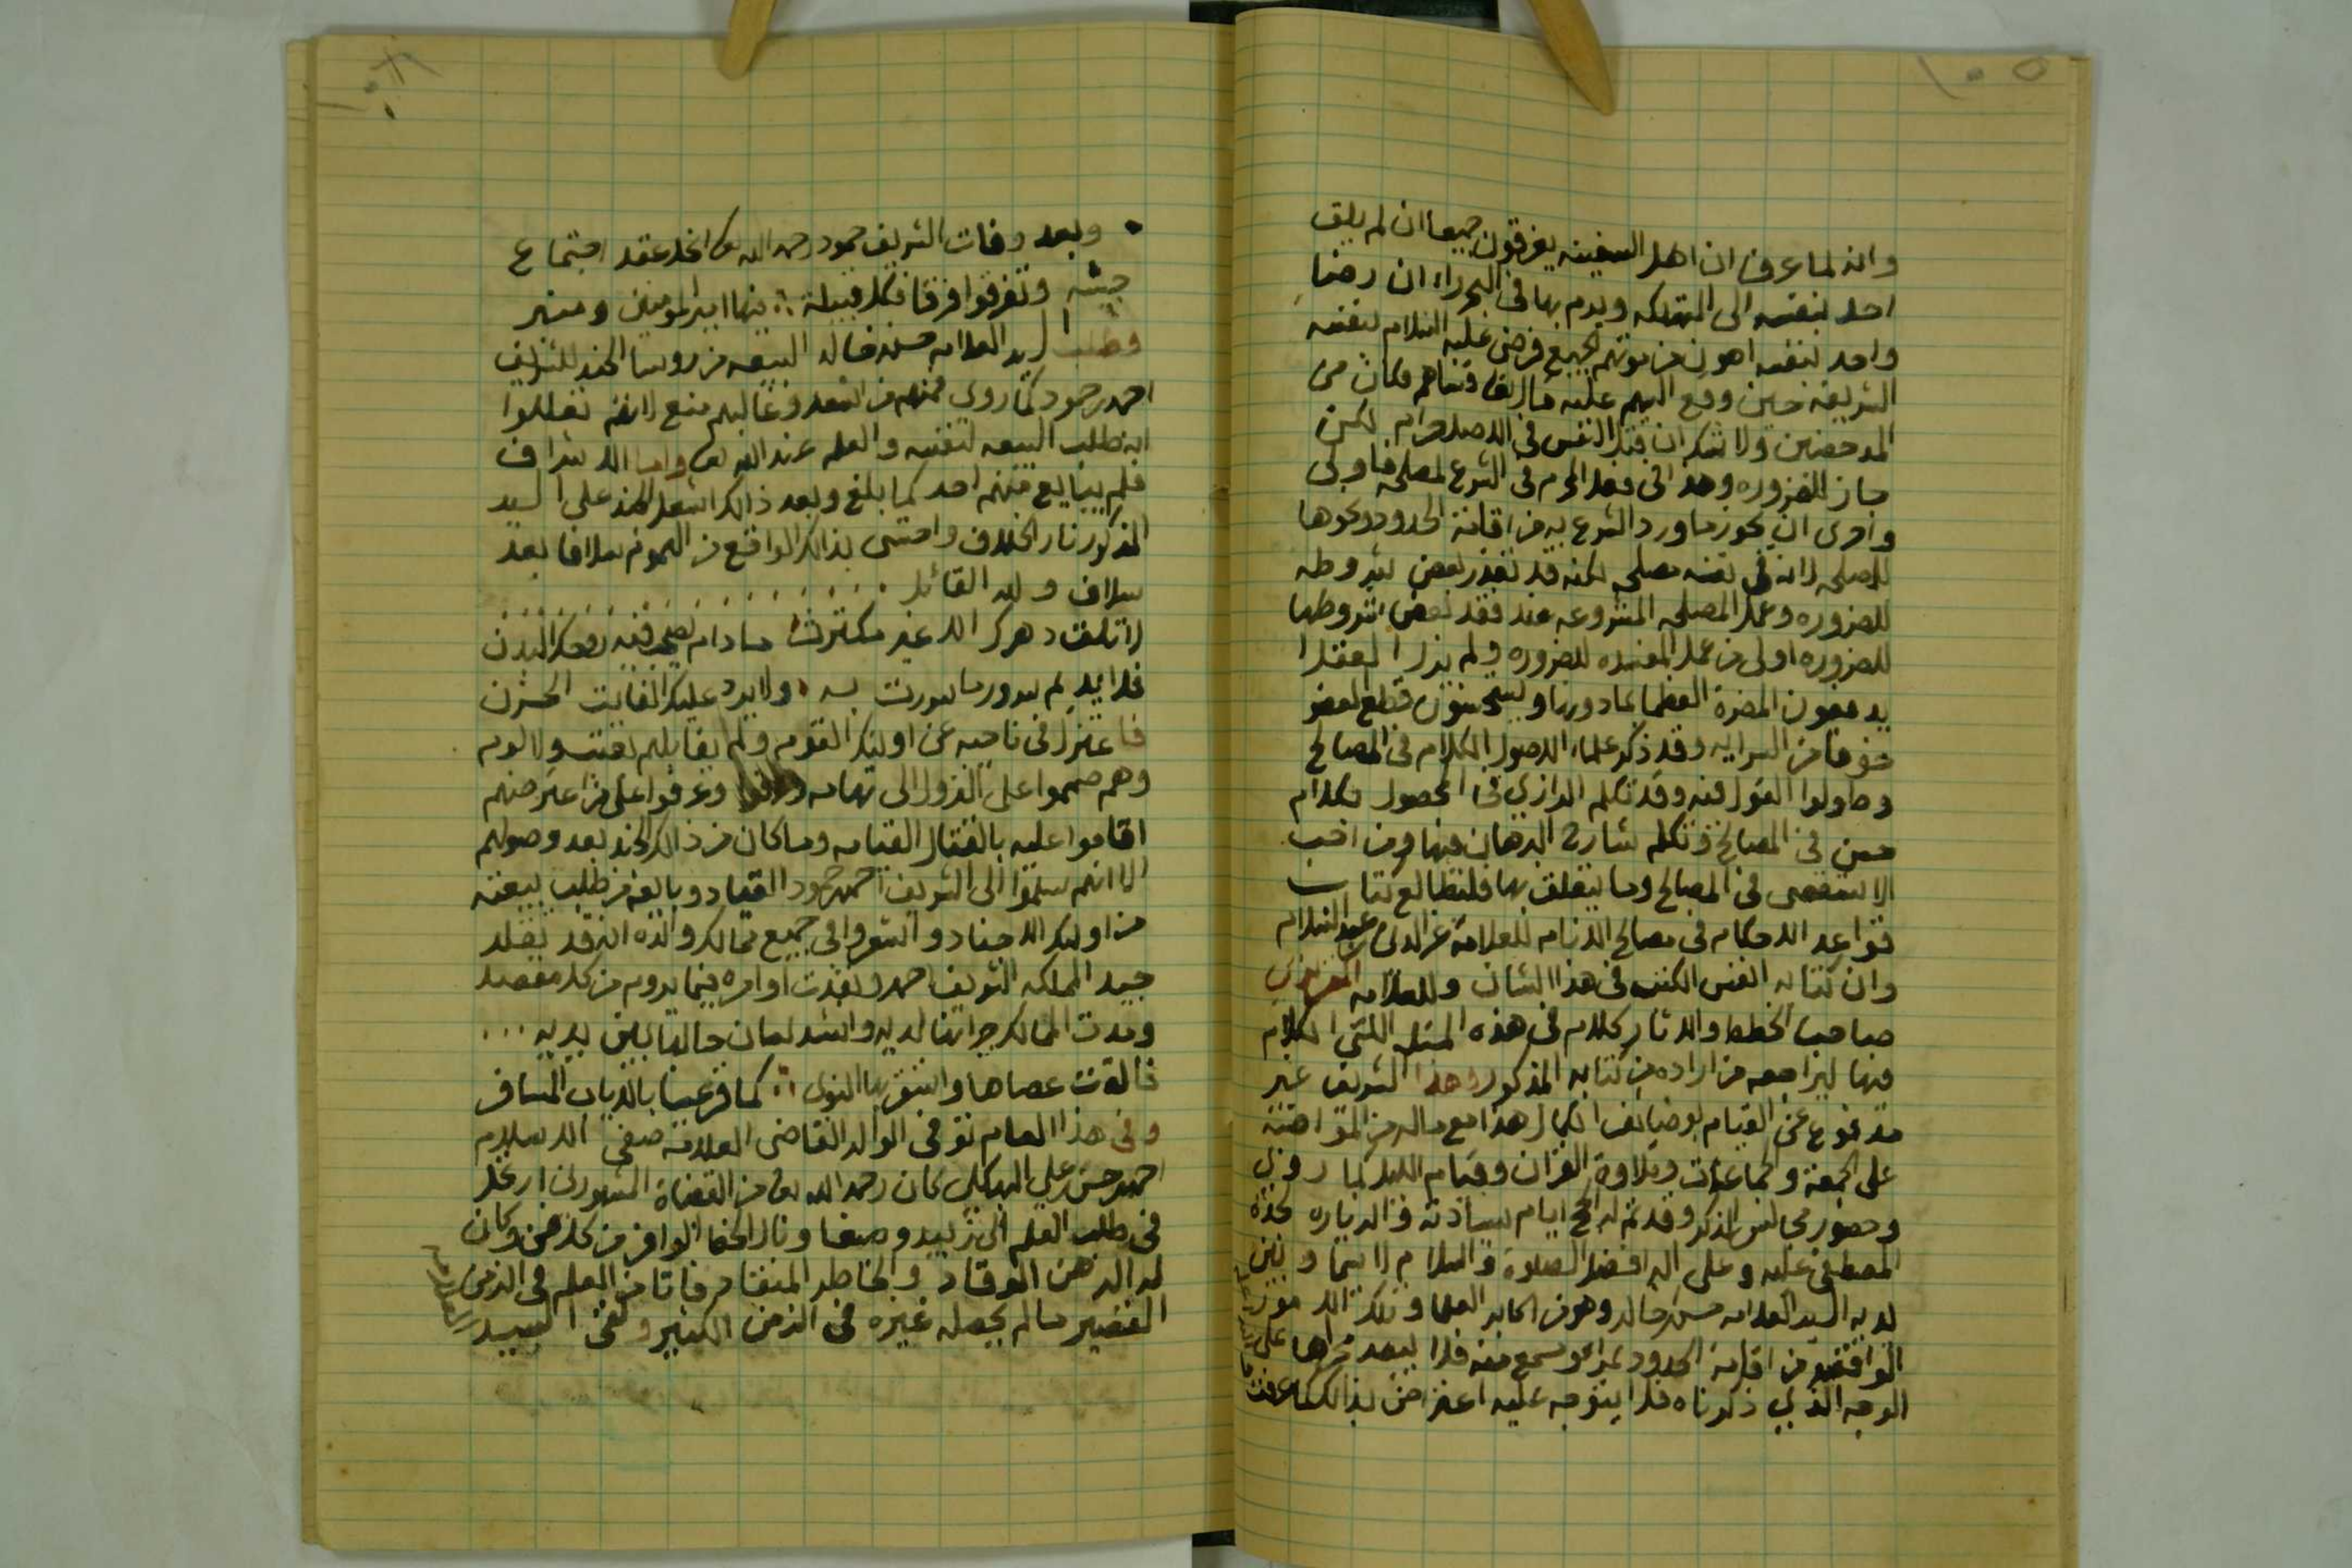 ١٠٥
وانه لما عرف ان اهل السفينه يغرقون جميعا ان لم يلق
احد بنفسه الى التهلكه ويرم بها في البحر راء ان رضا
واحد لنفسه اهون من موتهم الجميع فرضى عليه السلام لنفسه
الشريفه حين وقع السهم عليه فكان من
المدحضين ولا شك ان قتل النفس في الاصل حرام لكن
جاز للضروره وهذا في فعل المحرم في الشرع لمصلحه فاولى
واحرى ان يجوز ما ورد الشرع به من اقامة الحدود ونحوها
للمصلحه لانه في نفسه مصلحه لكنه قد تعذر بعض شروطه
للضروره وعمل المصلحه المشروعه عند فقد بعض شروطها
للضروره اولى من عمل المفسده للضروره ولم يزل العقلا
يدفعون المضرة العظما بما دونها ويستحسنون قطع العضو
خوفا من السرايه وقد ذكر علماء الاصول الكلام في المصالح
وطولوا القول فيه وقد تكلم الرازي في المحصول بكلام
حسن في المصالح وتكلم شارح البرهان فيها ومن احب
الاستقصى في المصالح وما يتعلق بها فليطالع كتاب
قواعد الاحكام في مصالح الانام للعلامة عز الدين بن عبد السلام
وان كتابه انفس الكتب في هذا الشان وللعلامه المقريزي
صاحب الخطط والاثار كلام في هذه المسئله الكلام
فيها ليراجعه من اراده من كتابه المذكور وهذا الشريف غير
مدفوع عن القيام بوضايف الكمال هذا مع ماله من المواضبة
على الجمعة والجماعات وتلاوة القران وقيام الليل كما روى
وحضور مجالس الذكر وقد تم له الحج ايام سيادته والزياره لجده
المصطفى عليه وعلى اله افضل الصلاة والسلام لا سيما وبين
لديه السيد العلامه حسن خالد وهو من اكابر العلما وتلك الامور
الواقعه من اقامة الحدود بمراى ومسمع منه فلا يبعد على
الوجه الذي ذكرناه فلا يتوجه عليه اعتراض بذالك كما عرفت
وبعد وفات الشريف حمود رحمه الله تعالى انحل عقد اجتماع
جيشه وتفرقوا فرقا فكل قبيلة :: فيها امير المومنين ومنبر
وطلب السيد العلامه حسن خالد البيعه من روسا الجند للشريف
احمد بن حمود كما روى فمنهم من اسعد وغالبهم منع لانهم تعللوا
انه طلب البيعه لنفسه والعلم عند الله تعالى واما الاشراف
فلم يبايع منهم احد كما بلغ وبعد ذالك اشعل الجند على السيد
المذكور نار الخلاف واحتسى بذالك الواقع من الهموم سلافا بعد
سلاف ولله القائل
لا تلق دهرك الا غير مكترث ما دام يصحب فيه روحك البدن
فلا يديم سرور ما سررت به ولا يرد عليك الفايت الحزن
فاعتزل في ناحيه عن اوليك القوم ولم يقابلهم بعتب ولا لوم
وهم صمموا على النزول الى تهامه وعرفوا على من اعترضهم
اقاموا عليه بالقتال القيامه وما كان من ذالك الجند بعد وصولهم
الا انهم سلموا الى الشريف احمد بن حمود القياد وبايعه من طلب بيعته
من اوليك الاجناد واشعروا في جميع ممالك والده انه قد تقلد
جيد المملكه الشريف احمد ونفذت اوامره فيما يروم من كل مقصد
وقدت الممالك لديه وانشد لسان حالها بين يديه ...
فالقت عصاها واستقر بها النوى :: كما قر عينا بالاياب المسافر
وفي هذا العام توفي الوالد القاضي العلامه صفي الاسلام
احمد بن حسن بن علي البهكلي كان رحمه الله تعالى من القضاة المشهورين ارتحل
في طلب العلم الى زبيد وصنعا ونال الحظ الوافر من كل فن وكان
له الذهن الوقاد والخاطر المنقاد من العلم في الزمن
القصير ما لم يحصله غيره في الزمن الكثير ولقى السيد